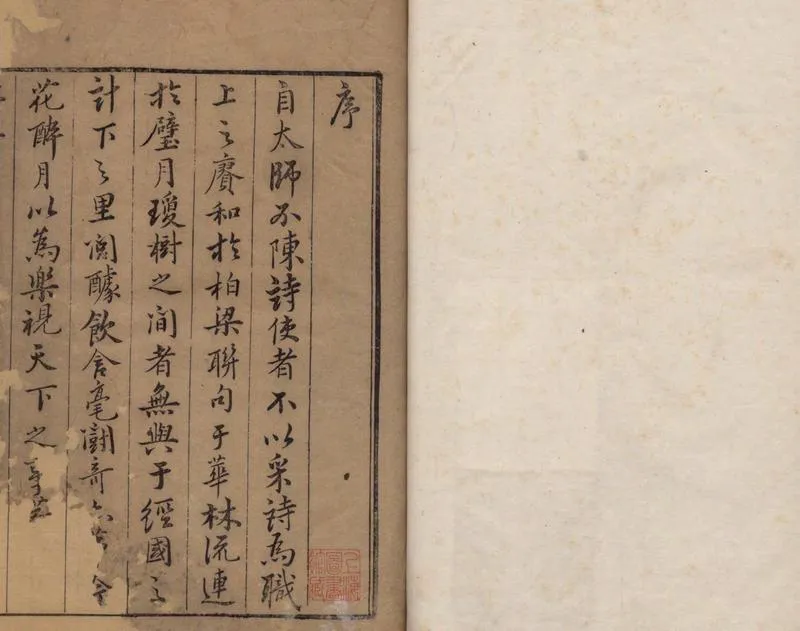 序
自太師不陳詩使者不以采詩為職
上之賡和於柏梁聯句于華林流連
於璧月瓊樹之間者無與于經國之
計下之里閭醵飲含毫鬪奇
花醉月以為樂視天下之
上海圖書館藏